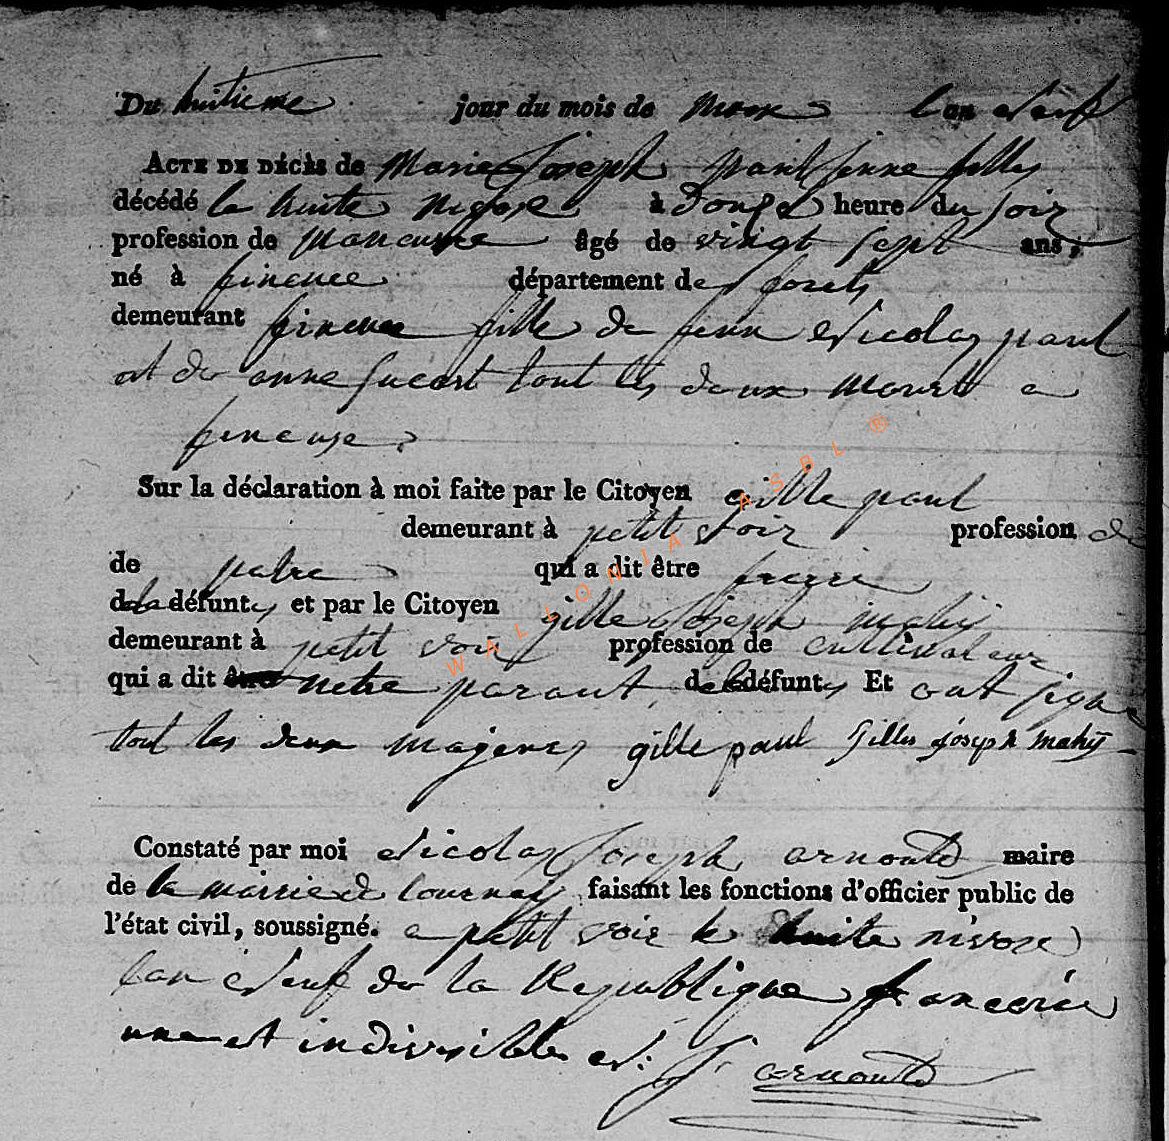 Du huitieme jour du mois de l'an neuf
ACTE DE DÉCÈS de Marie Joseph paul jenne fille
décédé le huite nivose à donze heure du soir
profession de manouvre âgé de vingt sept ans,
né à fineuse département des forets
demeurant fineuse fille de feux Nicolas paul
et de anne tout les deux mourt a
fineuse
Sur la déclaration à moi faite par le Citoyen gille paul
demeurant à petit voir profession de
de patre qui a dit être freire
de la défunte et par le Citoyen gille Joseph mahy
demeurant à petit voir profession de cultivateur
qui a dit être parant de la défunte Et ont signe
tout les deux majeures gille paul Gilles joseph mahy
Constaté par moi Nicolas Joseph arnould maire
de la mairie de tournay faisant les fonctions d'officier public de
l'état civil, soussigné. a petit voir le huite nivose
l'an neuf de la Republique francoise
une et indivisible N. J. arnould
WALLONIA ASBL ®